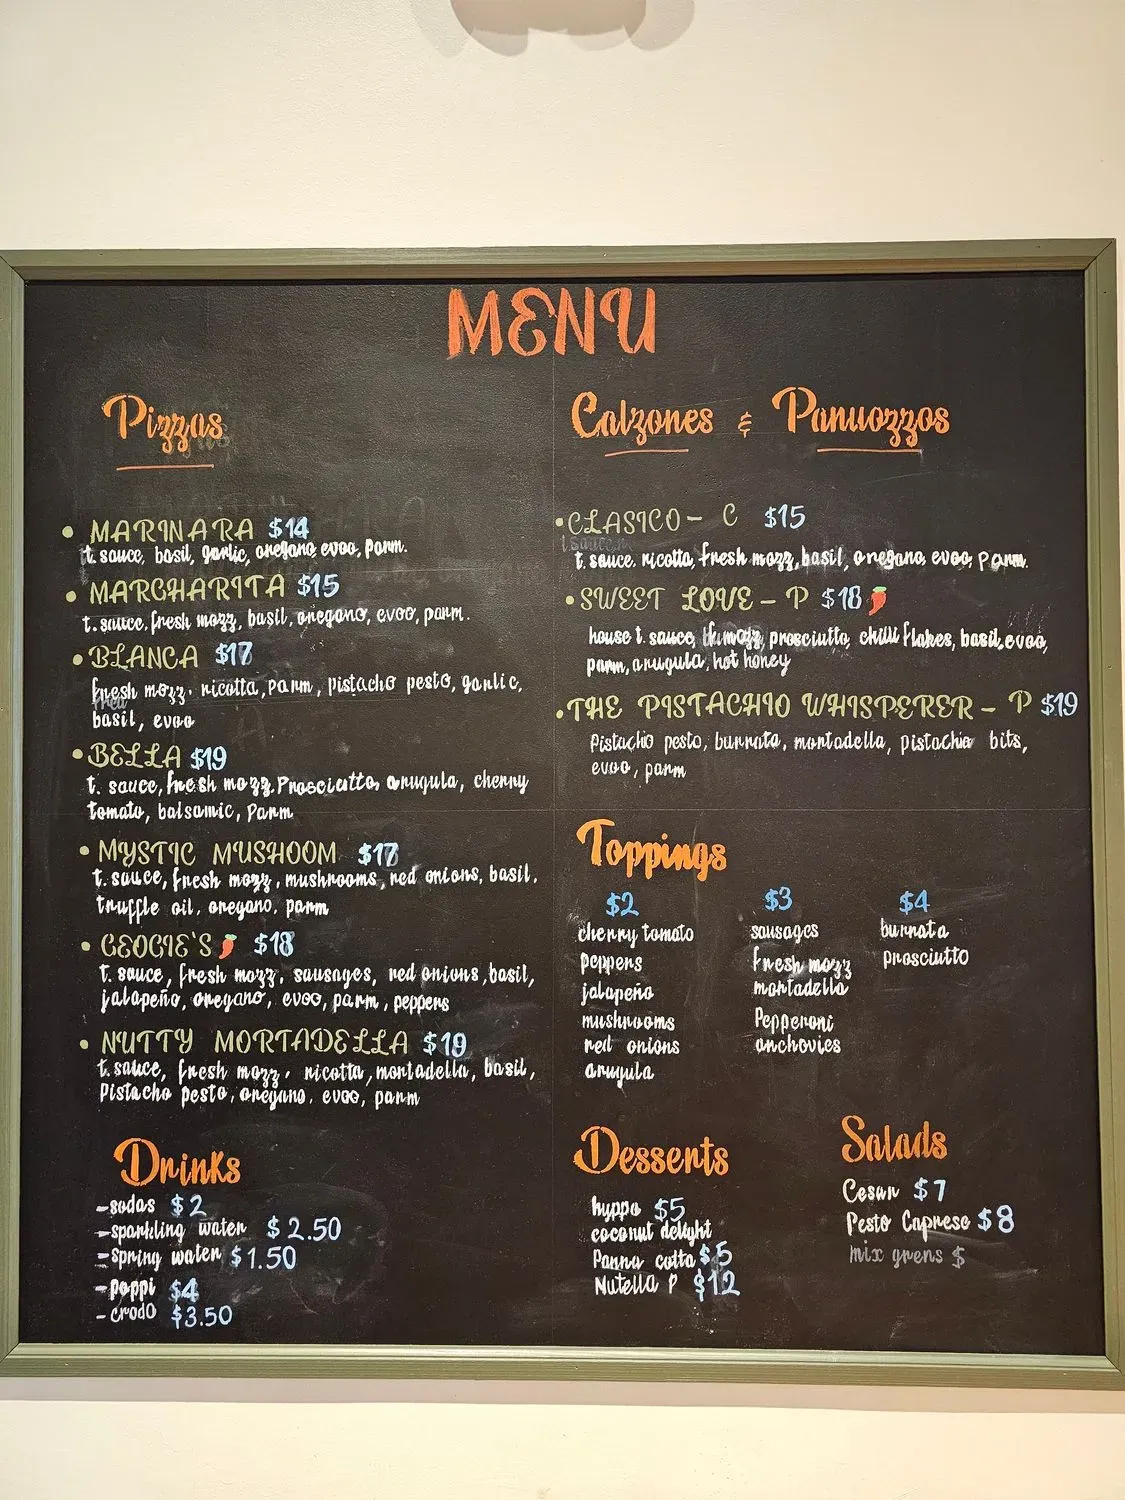 MENU
Pizzas
• MARINARA $14
t. sauce, basil, garlic, oregano, evoo, parm.
• MARGHARITA $15
t. sauce, fresh mozz, basil, oregano, evoo, parm.
• BLANCA $17
fresh mozz, ricotta, parm, pistacho pesto, garlic,
basil, evoo
• BELLA $19
t. sauce, fresh mozz, Prosciutto, arugula, cherry
tomato, balsamic, Parm
• MYSTIC MUSHOOM $17
t. sauce, fresh mozz, mushrooms, red onions, basil,
truffle oil, oregano, parm
• GEOGIE'S $18
t. sauce, fresh mozz, sausages, red onions, basil,
jalapeño, oregano, evoo, parm, peppers
• NUTTY MORTADELLA $19
t. sauce, fresh mozz, ricotta, mortadella, basil,
Pistacho pesto, oregano, evoo, parm
Drinks
-sodas $2
-sparkling water $2.50
-spring water $1.50
-poppi $4
-crodo $3.50
Calzones & Panuozzos
• CLASICO - C $15
t. sauce, ricotta, fresh mozz, basil, oregano, evoo, parm.
• SWEET LOVE - P $18
house t. sauce, mozz, prosciutto, chilli flakes, basil, evoo,
parm, arugula, hot honey
• THE PISTACHIO WHISPERER - P $19
Pistachio pesto, burrata, mortadella, pistachio bits,
evoo, parm
Toppings
$2
cherry tomato
peppers
jalapeño
mushrooms
red onions
arugula
$3
sausages
fresh mozz
mortadella
Pepperoni
anchovies
$4
burrata
prosciutto
Desserts
hyppo $5
coconut delight
Panna cotta $5
Nutella P $12
Salads
Cesar $7
Pesto Caprese $8
mix grens $